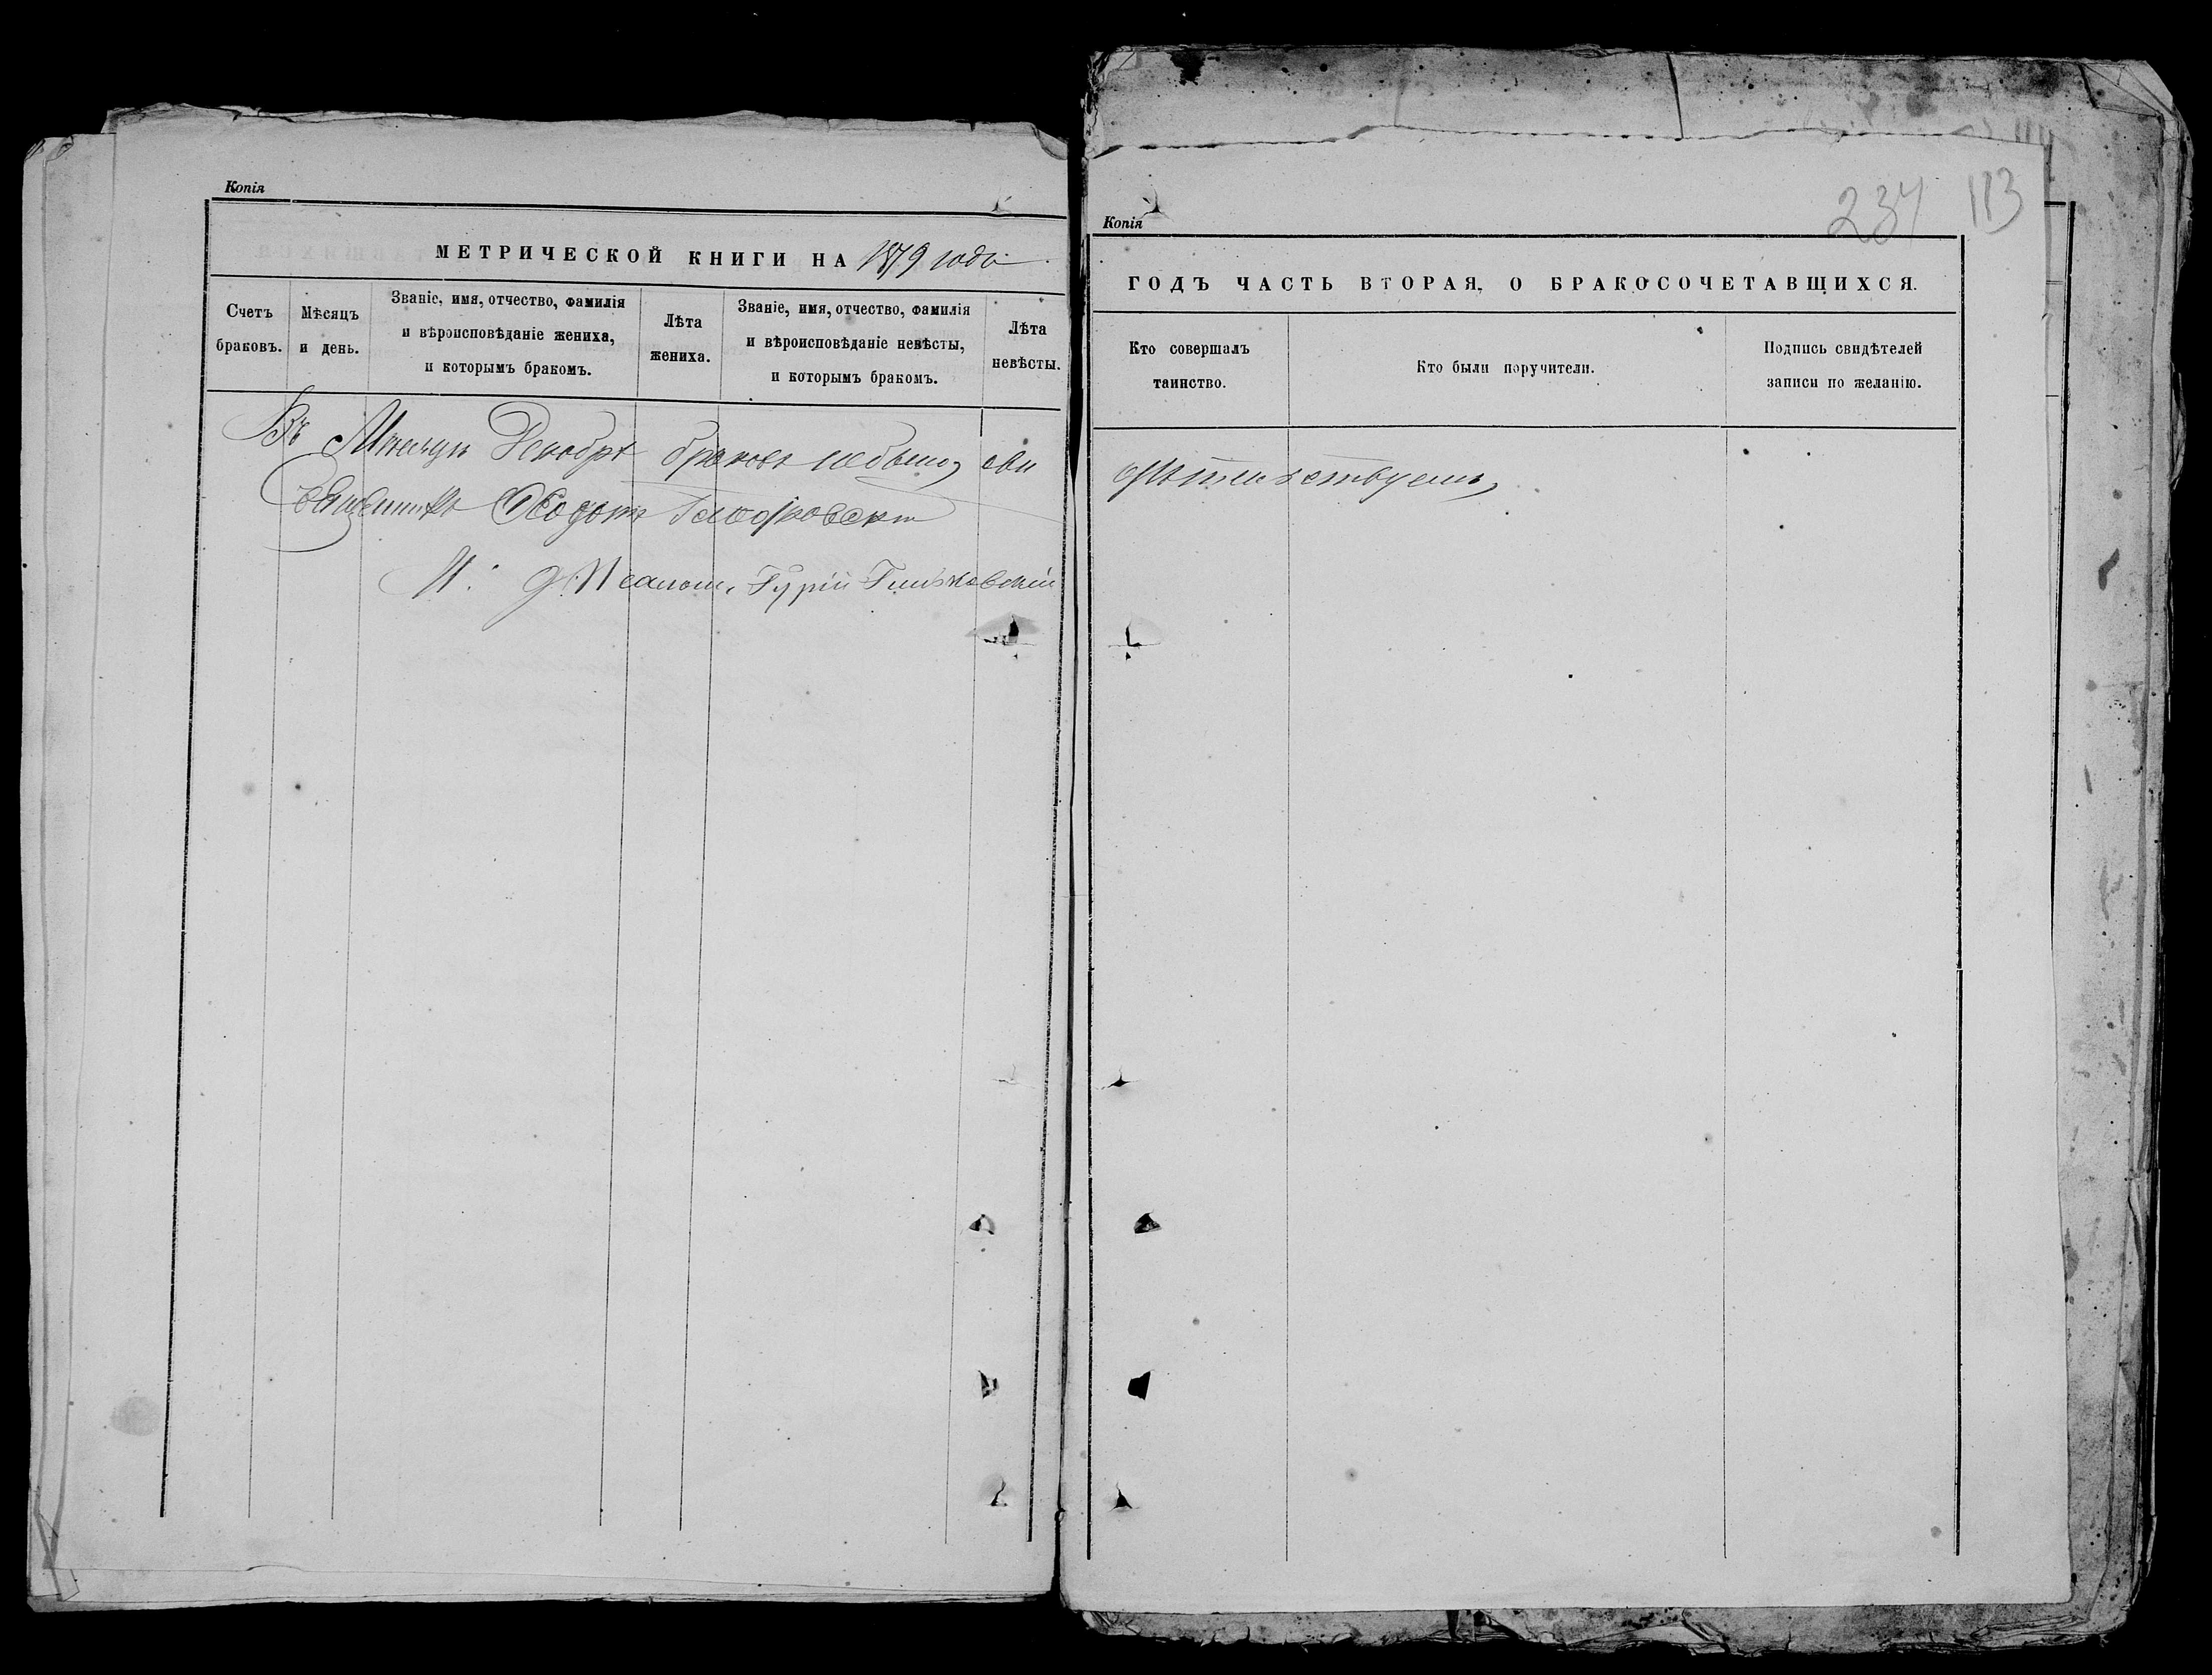 Копія
МЕТРИЧЕСКОЙ КНИГИ НА 1879 годъ
Счетъ браковъ.
Мѣсяцъ и день.
Званіе, имя, отчество, фамилія и вѣроисповѣданіе жениха, и которымъ бракомъ.
Лѣта жениха.
Званіе, имя, отчество, фамилія и вѣроисповѣданіе невѣсты, и которымъ бракомъ.
Лѣта невѣсты.
Въ Мѣсяцѣ Декабрѣ браковъ небыло, сви
Священникъ Ѳеодотъ
И. д. Псалом. Гурій
Копія
234 113
ГОДЪ ЧАСТЬ ВТОРАЯ, О БРАКОСОЧЕТАВШИХСЯ.
Кто совершалъ таинство.
Кто были поручители.
Подпись свидѣтелей записи по желанію.
дѣтельствуемъ,